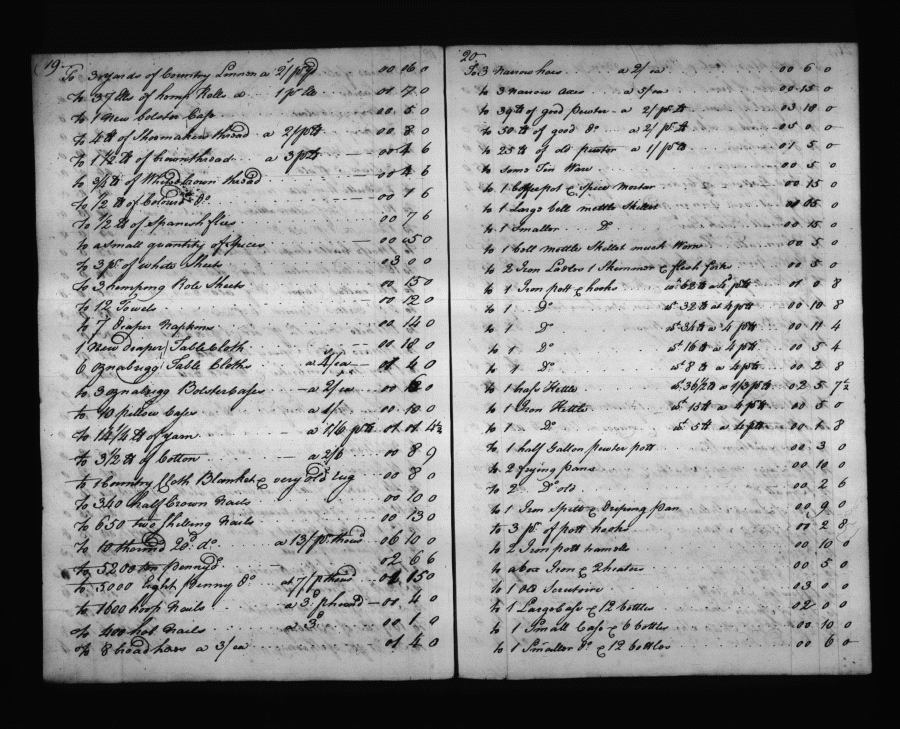 19
To 3 yards of Country Linnen a 2/ pr yd 00 06 0
to 37 Ells of hemp Rolls a 1 pr Ell 01 17 0
to 1 New bolster Case 00 5 0
to 4 lb of Shoemakers thread a 2/ p lb 00 8 0
to 1 1/2 lb of brownthread a 3 p lb 00 4 6
to 3/4 lb of Whited brown thread 00 4 6
to 1/2 lb of Colourd Do 00 1 6
to 1/2 lb of Spanish flies 00 7 6
to a Small quantity of Spices 00 05 0
to 3 pr of white Sheets 03 0 0
to 3 hemping Role Sheets 00 15 0
to 12 Towels 00 12 0
to 7 Deaper Napkins 00 14 0
1 New deaper Table Cloth 00 18 0
6 oznabrigg Table Cloths a 4/ ea 01 4 0
to 3 oznabrigg Bolstercases a 2/ ea 00 0
to 10 pillow Cases a 1/ 00 10 0
to 14 1/4 lb of yarn a 1/6 p lb 01 01 4 1/2
to 3 1/2 lb of Cotton a 2/6 00 8 9
to 1 Country Cloth Blanket & very old rug 00 8 0
to 340 half Crown Nails 00 10 0
to 650 two Shilling Nails 00 13 0
to 10 thousd 20d do a 13/ pr thousd 06 10 0
to 5200 ten penny do 02 6 6
to 5000 Eight penny Do at 7/ p thousd 01 15 0
to 1600 hoop Nails a 3d p hund 01 4 0
to 400 hob Nails a 3d 00 1 0
to 8 broad hoes a 3/ ea 01 4 0
20
To 3 Narrow hoes a 2/ ea 00 6 0
to 3 Narrow axes a 5/ ea 00 15 0
to 39 lb of good Pewter a 2/ p lb 03 18 0
to 50 lb of good Do a 2/ p lb 05 0 0
to 25 lb of old pewter a 1/ p lb 01 5 0
to Some Tin Ware 00 5 0
to 1 Coffepot & Spice Mortar 00 15 0
to 1 Large bell mettle Skillet 05 0
to 1 Smaller Do 00 15 0
to 1 bell mettle Skillet much Worn 00 5 0
to 2 Iron Ladles 1 Skimmer & flesh fork 00 5 0
to 1 Iron pott & hooks wt 62 lb a 4d p lb 01 0 8
to 1 Do wt 32 lb a 4 p lb 00 10 8
to 1 Do wt 34 lb a 4 p lb 00 11 4
to 1 Do wt 16 lb a 4 p lb 00 5 4
to 1 Do wt 8 lb a 4 p lb 00 2 8
to 1 brass Kettle wt 36 1/2 lb a 1/3 p lb 02 5 7 1/2
to 1 Iron Kettle wt 15 lb a 4 p lb 00 5 0
to 1 Do wt 5 lb a 4 p lb 00 1 8
to 1 half Gallon pewter pott 00 3 0
to 2 frying pans 00 10 0
to 2 Do old 00 2 6
to 1 Iron Spitt & Driping pan 00 9 0
to 3 pr of pott hooks 00 2 8
to 2 Iron pott hamels 00 10 0
to a box Iron & 2 heaters 00 5 0
to 1 old Scrutoire 03 0 0
to 1 Large Case & 12 bottles 02 0 0
to 1 Small Case & 6 bottles 00 10 0
to 1 Smaller Do & 12 bottles 00 6 0